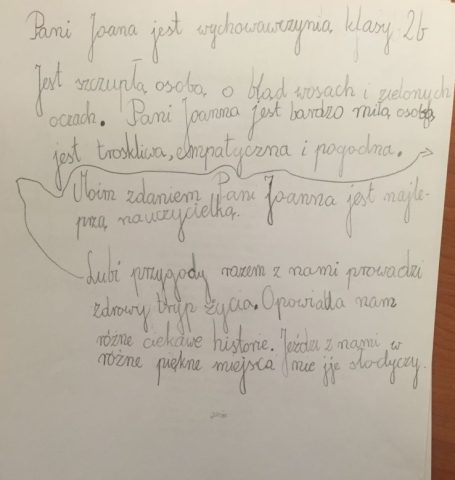 Pani Joana jest wychowawczynią klasy 2b
Jest szczupłą osobą o bląd wosach i zielonych
oczach. Pani Joanna jest bardzo miłą osobą
jest troskliwa, empatyczna i pogodna.
Moim zdaniem Pani Joanna jest najle-
przą nauczycielką.
Lubi przygody razem z nami prowadzi
zdrowy tryp życia. Opowiada nam
różne ciekawe historie. Jeździ z nami w
różne piękne miejsca nie jje słodyczy.